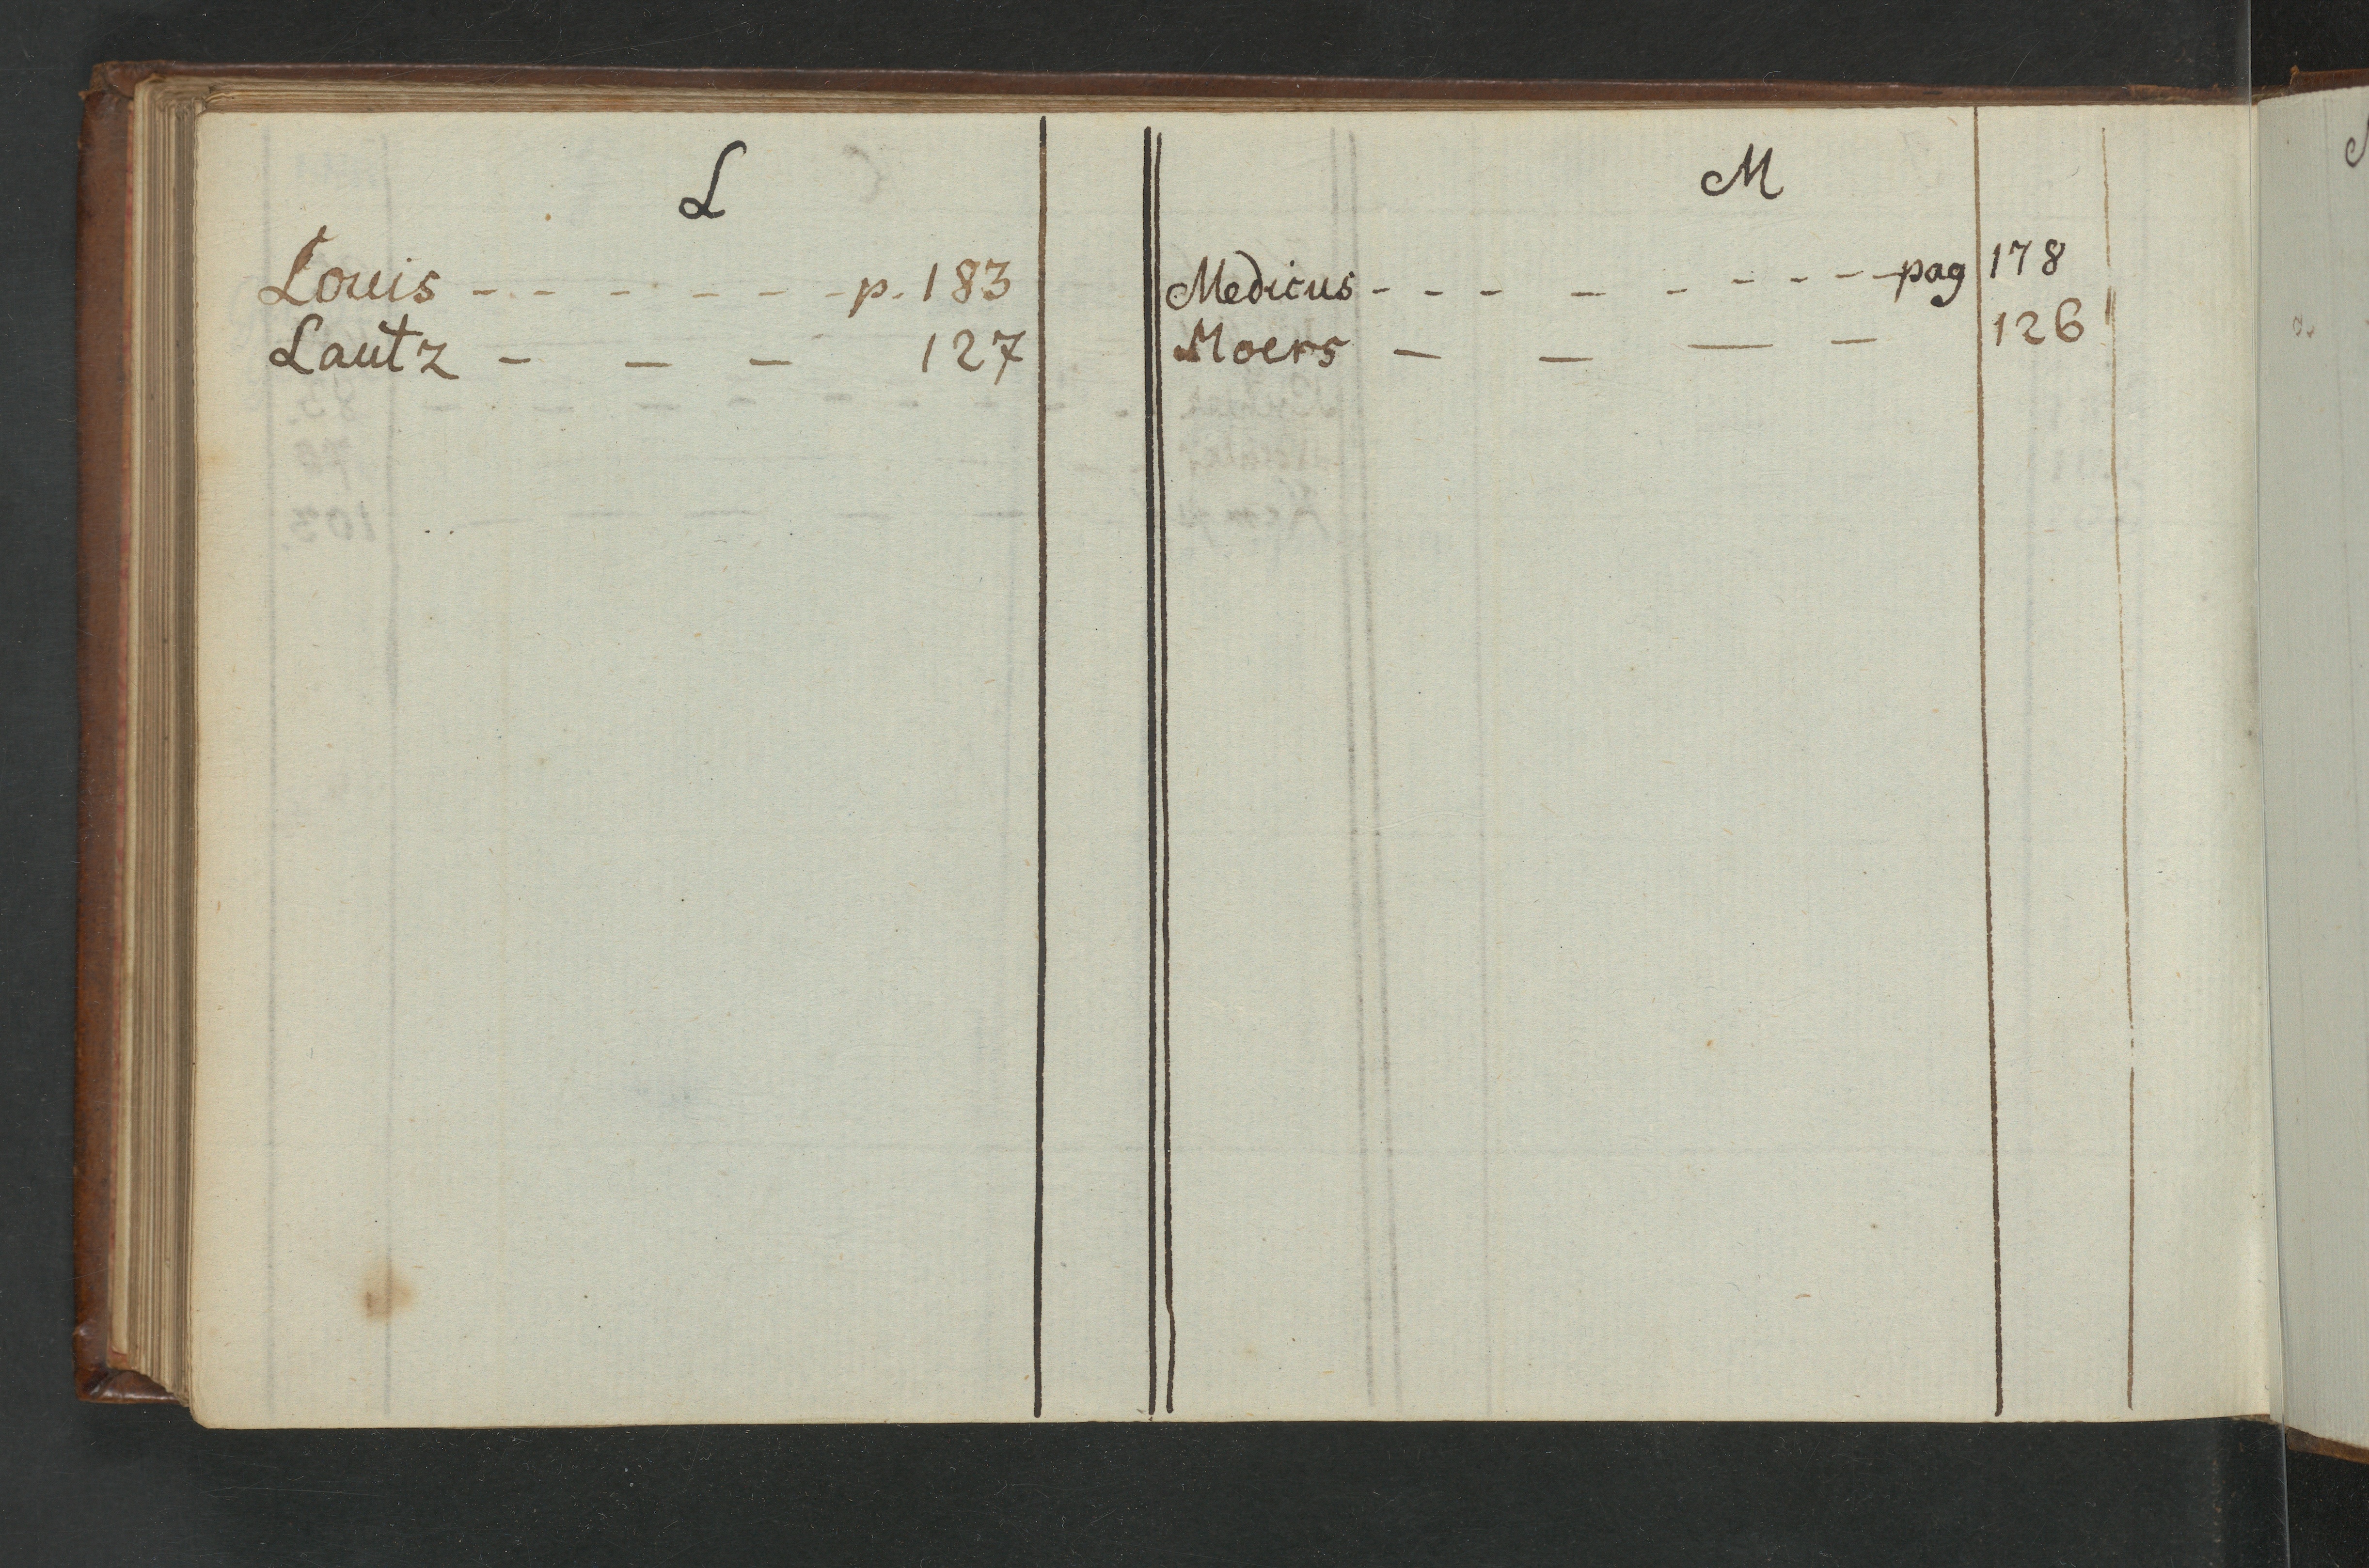 L
Louis - - - - - - - p. 183
Lautz - - - 127
M
Medicus - - - - - - - - - pag 178
Moers - - - - 126